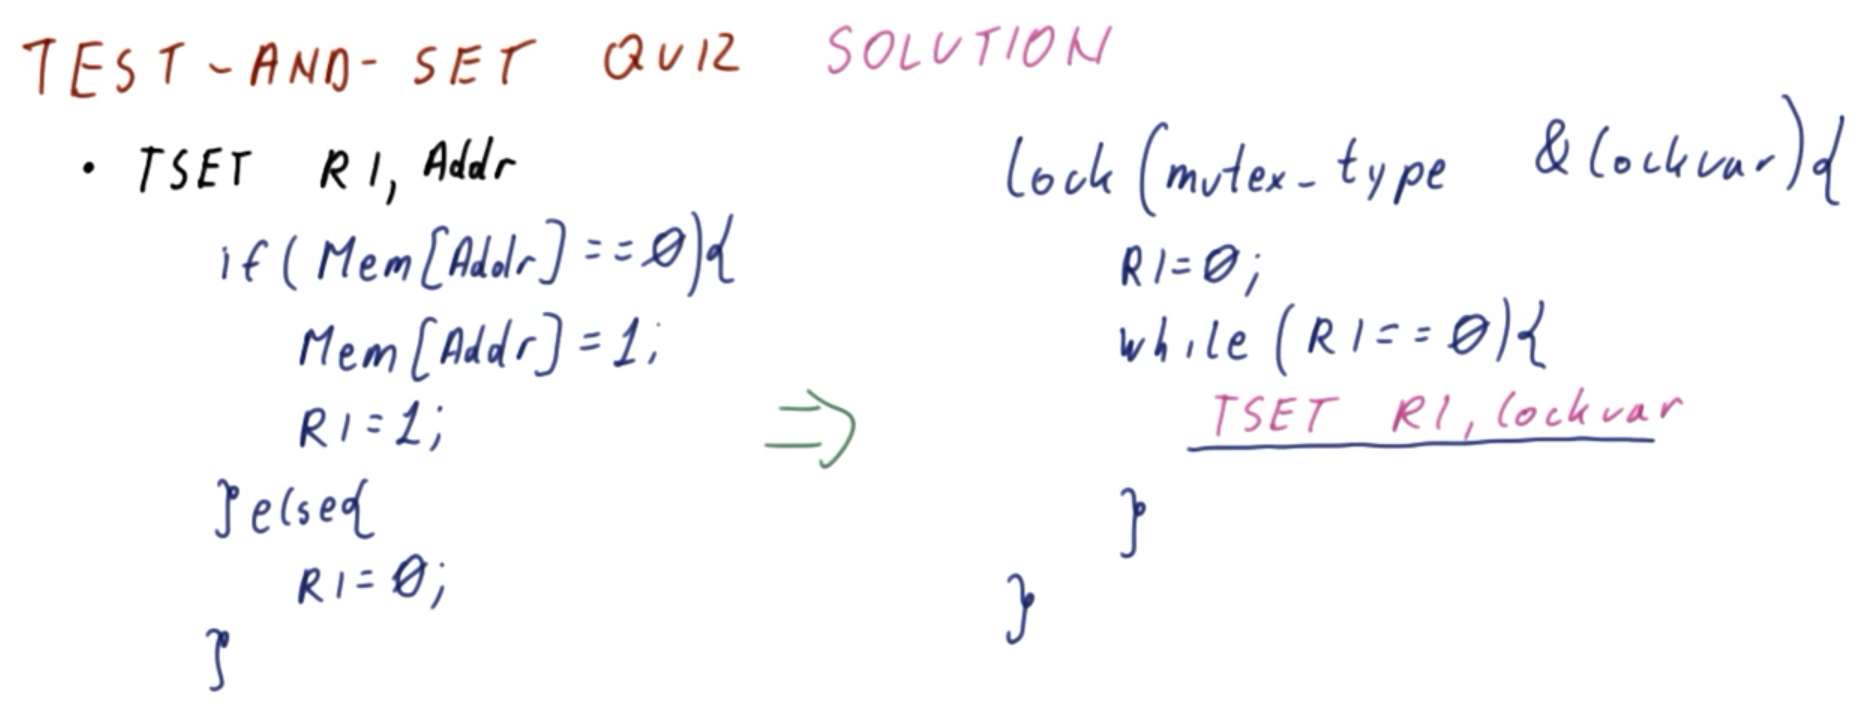 TEST-AND-SET QUIZ SOLUTION
• TSET R1, Addr
if(Mem[Addr]==0){
Mem[Addr]=1;
R1=1;
}else{
R1=0;
}
⇒
lock(mutex_type &lockvar){
R1=0;
while(R1==0){
TSET R1, lockvar
}
}